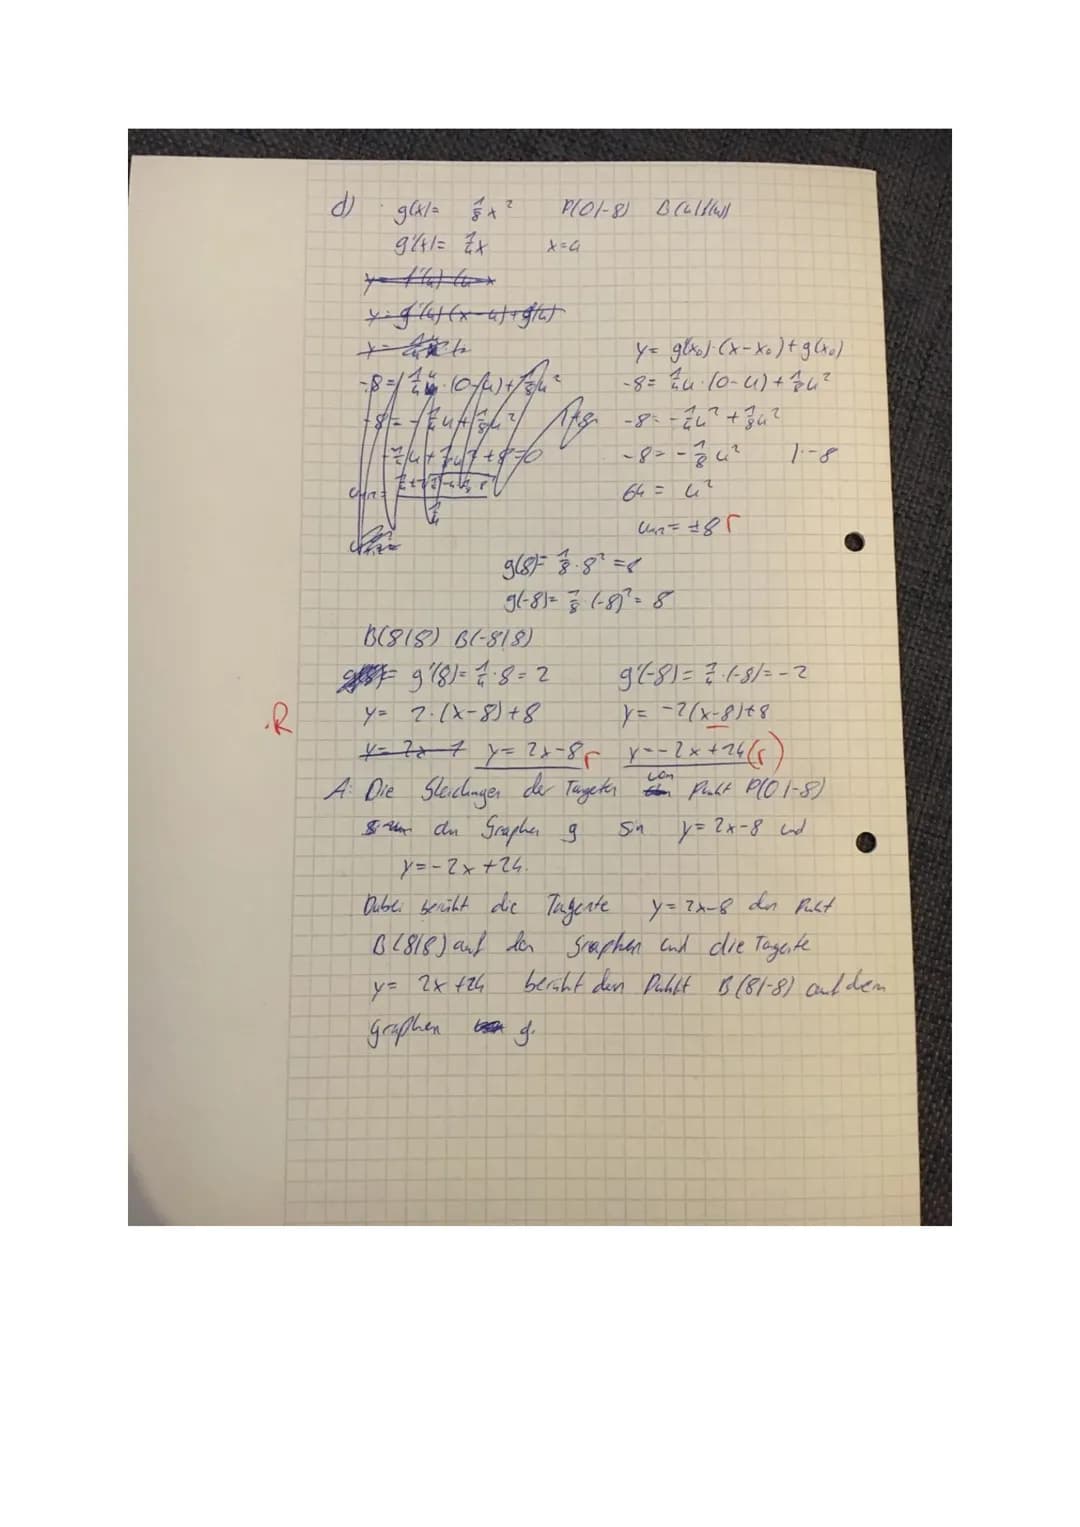 d) g(x)= 1/8 x² P(0/-8) B(u/f(u))
g'(x)= 1/4 x x=u
y= g'(u)(x-u)+g(u)
y= g'(x₀)·(x-x₀)+g(x₀)
-8= 1/4 u·(0-u)+1/8 u²
-8= -1/4 u² + 1/8 u²
-8= -1/8 u² |·-8
64 = u²
u₁,₂= ±8 r
g(8)= 1/8·8² =8
g(-8)= 1/8·(-8)²= 8
B(8/8) B(-8/8)
g'(8)= 1/4·8 = 2 g'(-8)= 1/4·(-8)= -2
R y= 2·(x-8)+8 y= -2(x-8)+8
y= 2x-8 r y=-2x+24 (r)
A: Die Gleichungen der Tangenten von Punkt P(0/-8)
an Graphen g sin y=2x-8 und
y=-2x+24.
Dabei berüht die Tangente y=2x-8 den Punkt
B(8/8) auf den Graphen und die Tagente
y= 2x+24 berüht den Punkt B(8/-8) auf dem
graphen g.